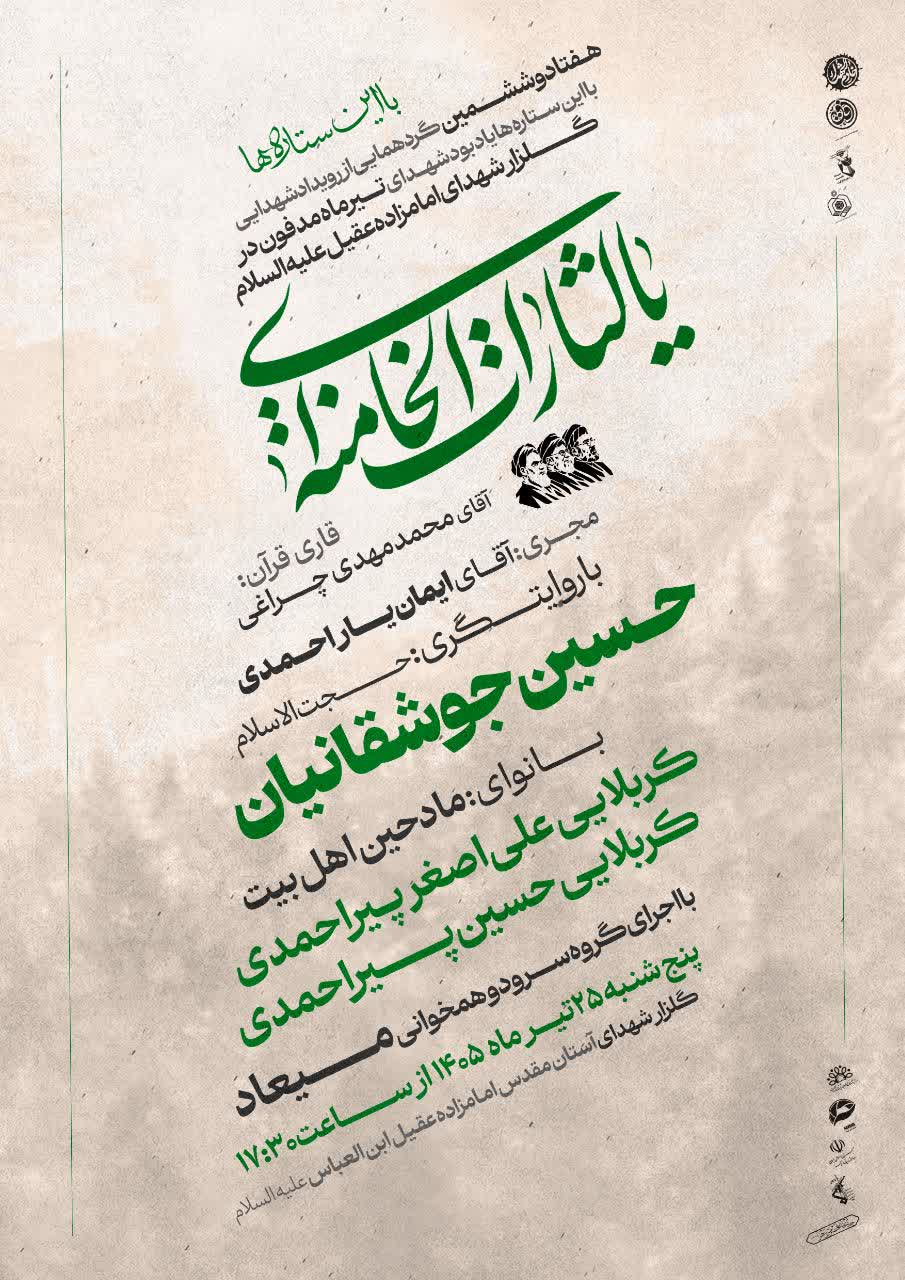 با این ستاره‌ها
هفتادوششمین گردهمایی از رویداد شهدایی
با این ستاره‌ها یادبود شهدای تیرماه مدفون در
گلزار شهدای امامزاده عقیل علیه السلام
یالثارات الخامنه‌ای
قاری قرآن:
آقای محمدمهدی چراغی
مجری: آقای ایمان یاراحمدی
با روایتگری: حجت الاسلام
حسین جوشقانیان
بانوای: مادحین اهل بیت
کربلایی علی اصغر پیراحمدی
کربلایی حسین پیراحمدی
با اجرای گروه سرود و همخوانی میعاد
پنج شنبه ۲۵ تیر ماه ۱۴۰۵ از ساعت ۱۷:۳۰
گلزار شهدای آستان مقدس امامزاده عقیل ابن العباس علیه السلام